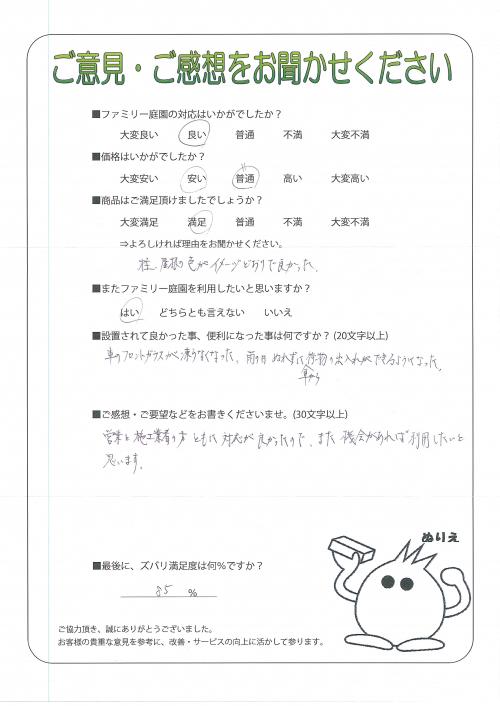 ご意見・ご感想をお聞かせください
■ファミリー庭園の対応はいかがでしたか？
大変良い 良い 普通 不満 大変不満
■価格はいかがでしたか？
大変安い 安い 普通 高い 大変高い
■商品はご満足頂けましたでしょうか？
大変満足 満足 普通 不満 大変不満
⇒よろしければ理由をお聞かせください。
柱、屋根の色がイメージどおりで良かった。
■またファミリー庭園を利用したいと思いますか？
はい どちらとも言えない いいえ
■設置されて良かった事、便利になった事は何ですか？(20文字以上)
車のフロントガラスが凍らなくなった。雨の日ぬれずに荷物の出入れができるようになった。
車から
■ご感想・ご要望などをお書きくださいませ。(30文字以上)
営業と施工業者の方ともに対応が良かったので、また機会があれば利用したいと
思います。
ぬりえ
■最後に、ズバリ満足度は何%ですか？
85 %
ご協力頂き、誠にありがとうございました。
お客様の貴重な意見を参考に、改善・サービスの向上に活かして参ります。